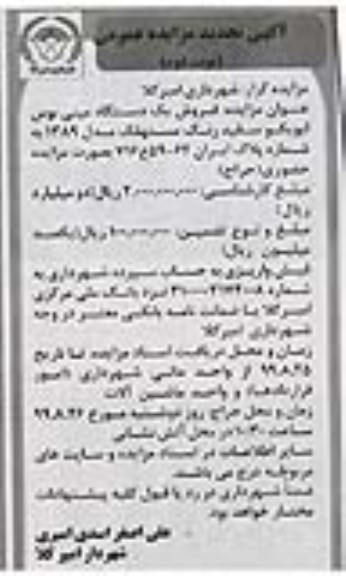 آگهی تجدید مزایده عمومی
(نوبت دوم)
مزایده گزار: شهرداری امیرکلا
عنوان مزایده: فروش یک دستگاه مینی بوس
ایویکو سفید رنگ مستهلک مدل ۱۳۸۹ به
شماره پلاک ایران ۶۲-۵۹ع۷۱۶ بصورت مزایده
حضوری(حراج)
مبلغ کارشناسی: ۲,۰۰۰,۰۰۰,۰۰۰ ریال(دو میلیارد
ریال)
مبلغ و نوع تضمین: ۱۰۰,۰۰۰,۰۰۰ ریال(یکصد
میلیون ریال)
فیش واریزی به حساب سپرده شهرداری به
شماره نزد بانک ملی مرکزی
امیرکلا یا ضمانت نامه بانکی معتبر در وجه
شهرداری امیرکلا
زمان و محل دریافت اسناد مزایده: تا تاریخ
۹۹.۸.۲۵ از واحد مالی شهرداری (امور
قراردادها) و واحد ماشین آلات
زمان و محل حراج: روز دوشنبه مورخ ۹۹.۸.۲۶
ساعت ۱۰:۳۰ در محل آتش نشانی
سایر اطلاعات در اسناد مزایده و سایت های
مربوطه درج می باشند.
ضمناً شهرداری در رد یا قبول کلیه پیشنهادات
مختار خواهد بود.
علی اصغر اسدی امیری
شهردار امیرکلا